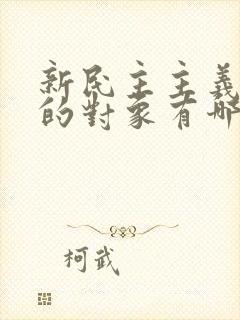 新民主主義
的對象有哪
柯武